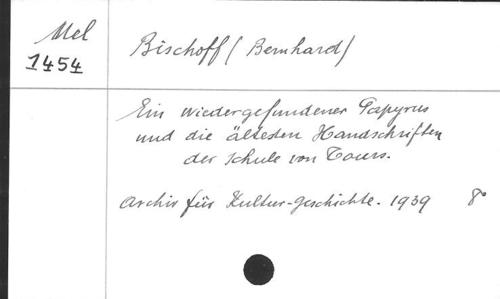 Mel
1454
Bischoff (Bernhard)
Ein wiedergefundener Papyrus
und die ältesten Handschriften
der Schule von Tours.
Archiv für Kultur-geschichte. 1939 8°